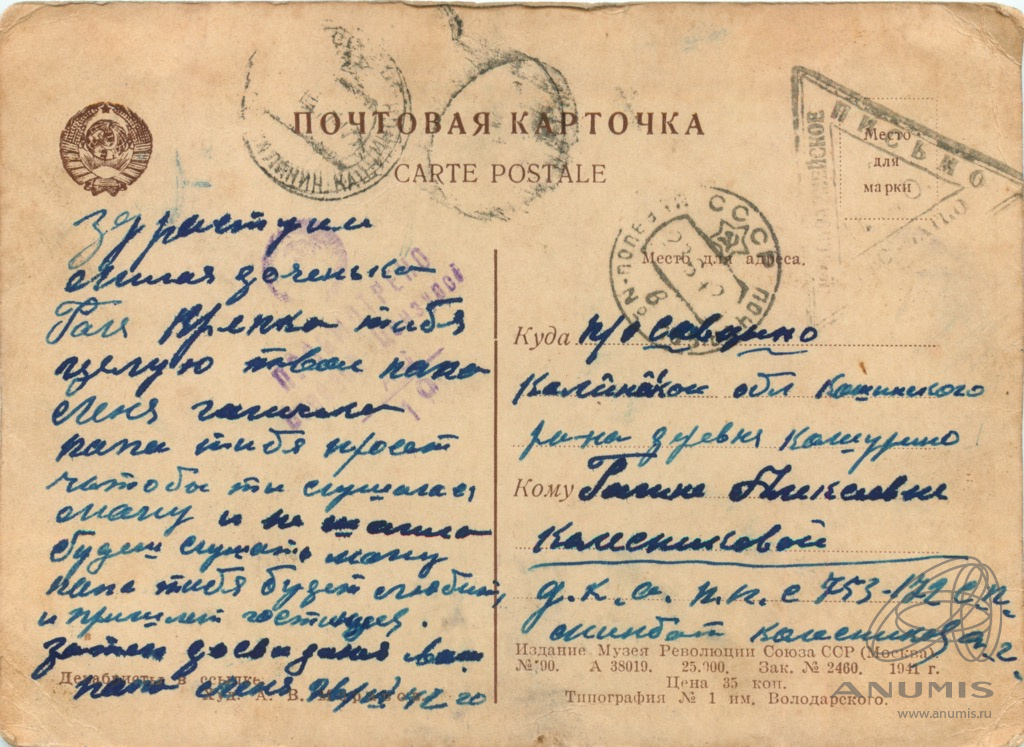 ПОЧТОВАЯ КАРТОЧКА
CARTE POSTALE
ПИСЬМО
Место
для
марки
СССР
Место для адреса.
здраствуй
милая доченька
Галя крепко тибя
целую твой папа
Леня
папа тибя просит
чтобы ты слушалас
маму и не
будеш слушать маму
папа тибя будет любит,
и пришлет гостинцев.
затем досвидания ваш
папа Леня 42 го
Куда п/о Савцыно
обл Кашинского
рана деревня Кошурино
Кому Галине Алексевне
Колесниковой
д.к.а. п.п.с 753-172 с.п.
минбат Колесникова
Декабристы в ссылке.
Худ. А. В.
Издание Музея Революции Союза ССР (Москва)
№ 90. А 38019. 25.000. Зак. № 2460. 1941 г.
Цена 35 коп.
Типография № 1 им. Володарского.
ANUMIS
www.anumis.ru